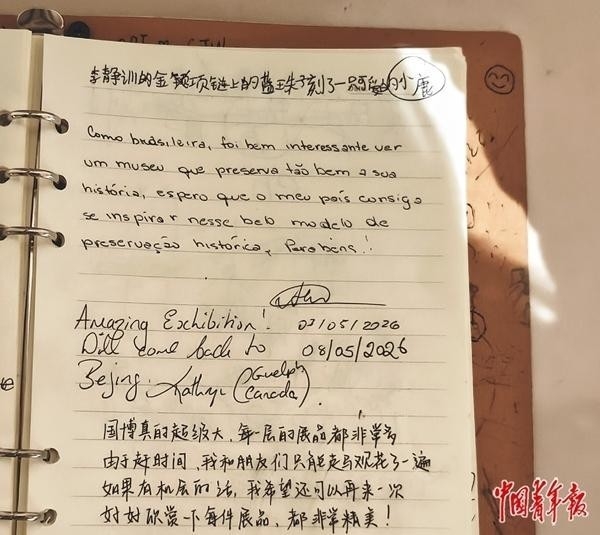 李静训的金项链上的蓝珠子刻了一只可爱的小鹿
Como brasileira, foi bem interessante ver
um museu que preserva tão bem a sua
história, espero que o meu país consiga
se inspirar nesse belo modelo de
preservação histórica, Parabéns!!
Amazing Exhibition! 07/05/2026
Will come back to 08/05/2026
Beijing. Kathryn (Guelph Canada)
国博真的超级大，每一层的展品都非常多
由于赶时间，我和朋友们只能走马观花了一遍
如果有机会的话，我希望还可以再来一次
好好欣赏一下每件展品，都非常精美！
中国青年报